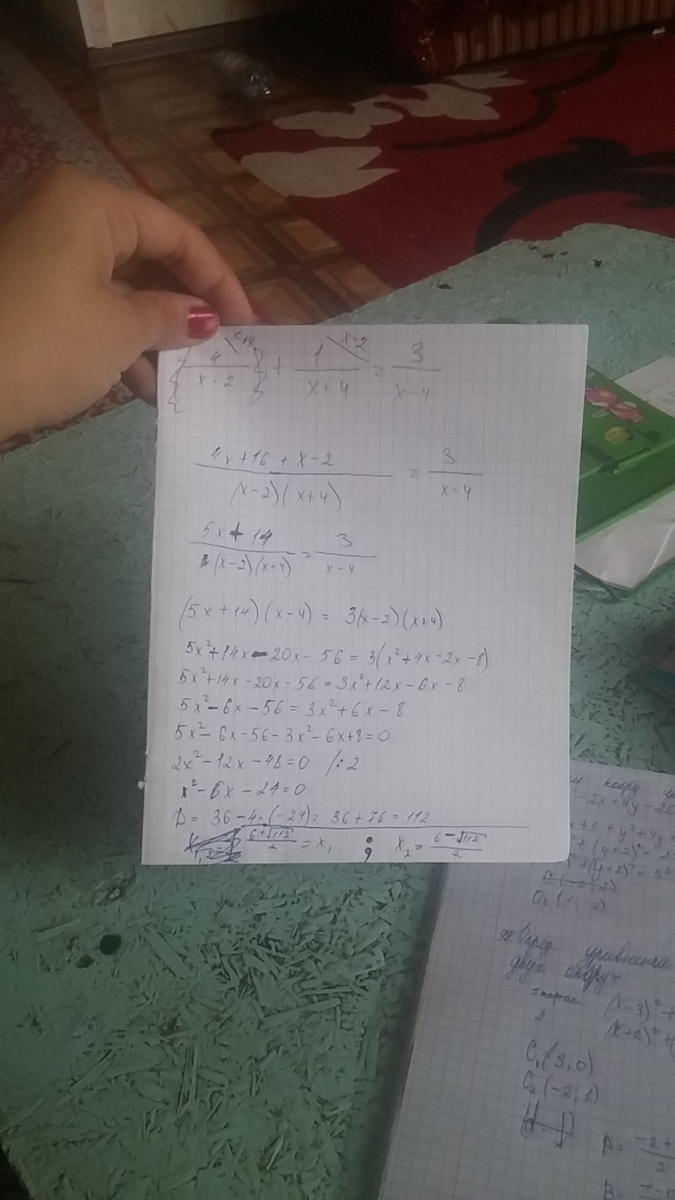 x+4 x-2
4/(x-2) + 1/(x+4) = 3/(x-4)
(4x+16+x-2)/((x-2)(x+4)) = 3/(x-4)
(5x+14)/((x-2)(x+4)) = 3/(x-4)
(5x+14)(x-4) = 3(x-2)(x+4)
5x²+14x-20x-56=3(x²+4x-2x-8)
5x²+14x-20x-56=3x²+12x-6x-8
5x²-6x-56=3x²+6x-8
5x²-6x-56-3x²-6x+8=0
2x²-12x-48=0 /:2
x²-6x-24=0
D=36-4·(-24)=36+76=112
(6+√112)/2=x₁ ; x₂=(6-√112)/2
-2x+4y-20
(y+2)²
уравнения
(x-3)²+
2
C₁(3;0)
C₂(-2;1)